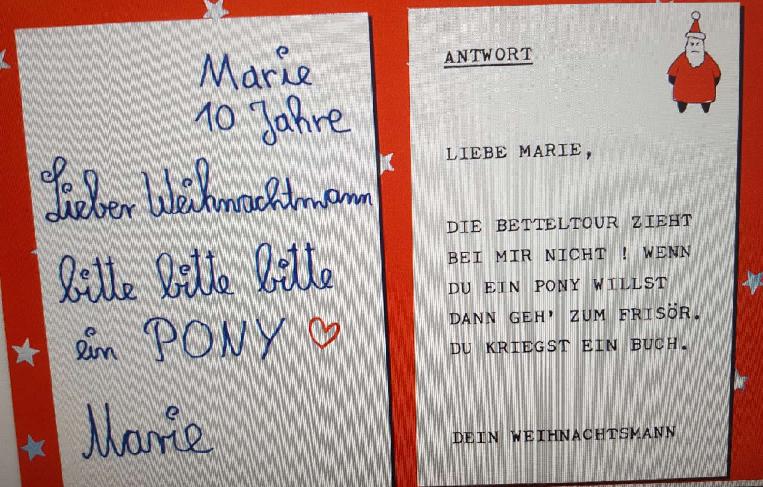 Marie
10 Jahre
Lieber Weihnachtmann
bitte bitte bitte
ein PONY
Marie
ANTWORT
LIEBE MARIE,
DIE BETTELTOUR ZIEHT
BEI MIR NICHT ! WENN
DU EIN PONY WILLST
DANN GEH' ZUM FRISÖR.
DU KRIEGST EIN BUCH.
DEIN WEIHNACHTSMANN